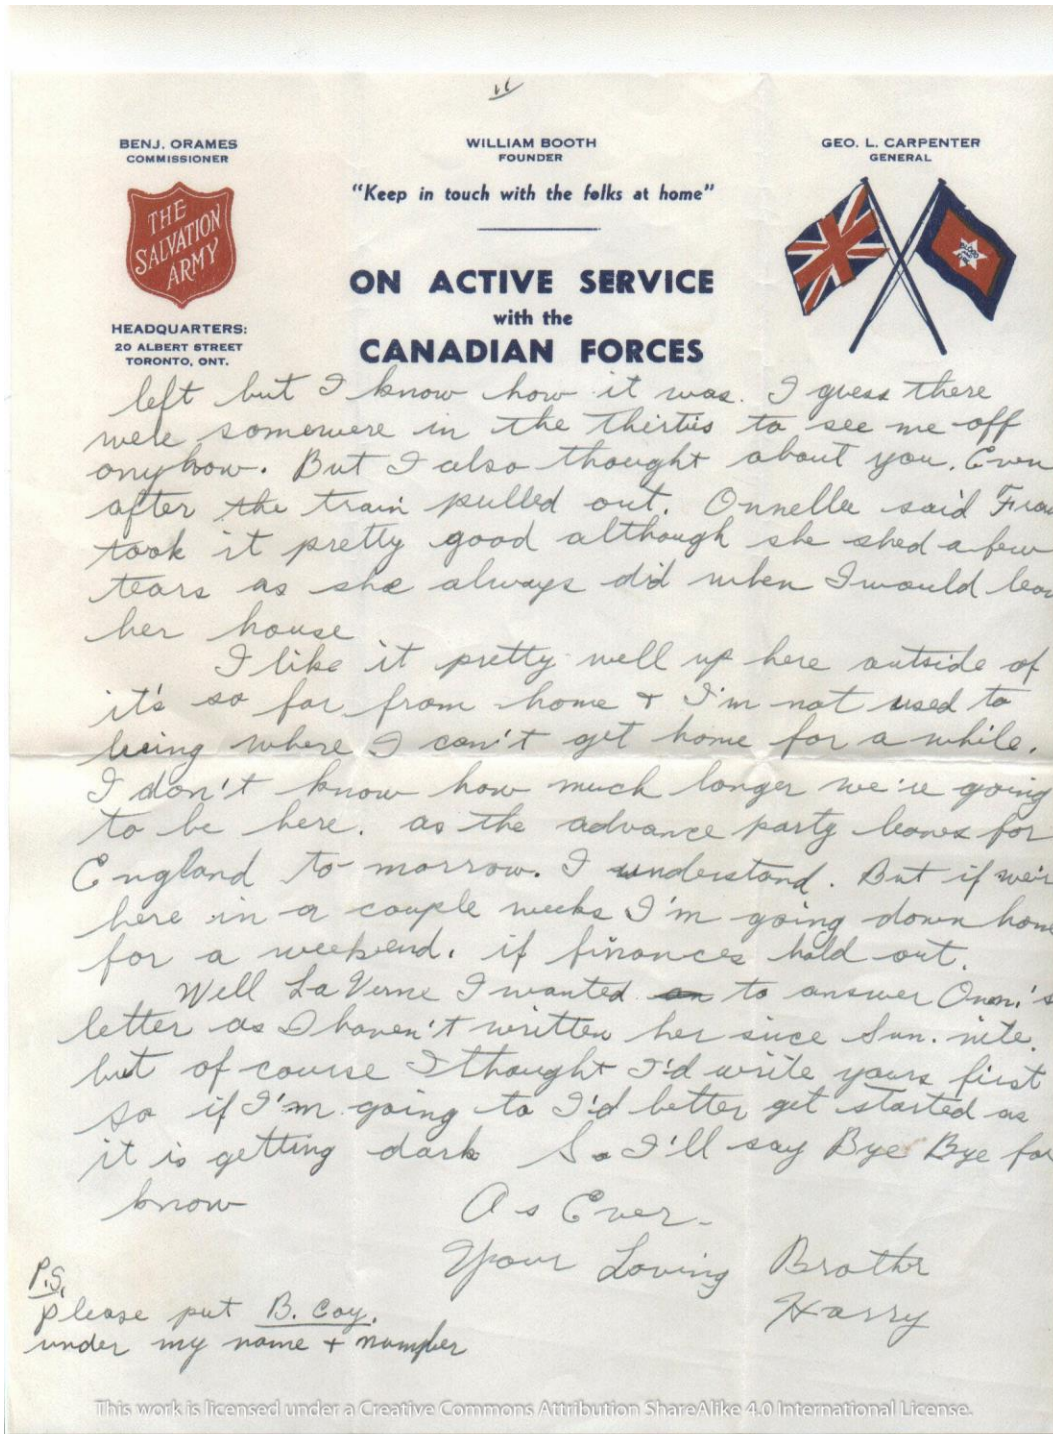 "
BENJ. ORAMES
COMMISSIONER
THE
SALVATION
ARMY
HEADQUARTERS:
20 ALBERT STREET
TORONTO, ONT.
WILLIAM BOOTH
FOUNDER
"Keep in touch with the folks at home"
ON ACTIVE SERVICE
with the
CANADIAN FORCES
GEO. L. CARPENTER
GENERAL
left but I know how it was. I guess there
were somewere in the thirtis to see me off
anyhow. But I also thought about you. Even
after the train pulled out. Onnellee said
took it pretty good although she shed a few
tears as she always did when I would
her house
I like it pretty well up here outside of
it's so far from home + I'm not used to
being where I can't get home for a while.
I don't know how much longer we're going
to be here. as the advance party leaves for
England to-morrow. I understand. But if
here in a couple weeks I'm going down
for a weekend. if finances hold out.
Well LaVerne I wanted to answer
letter as I haven't written her since Sun. nite.
but of course I thought I'd write yours first
so if I'm going to I'd better get started as
it is getting dark So I'll say Bye Bye for
know
As Ever-
Your Loving Brother
Harry
P.S.
please put B. Coy.
under my name + number
This work is licensed under a Creative Commons Attribution ShareAlike 4.0 International License.